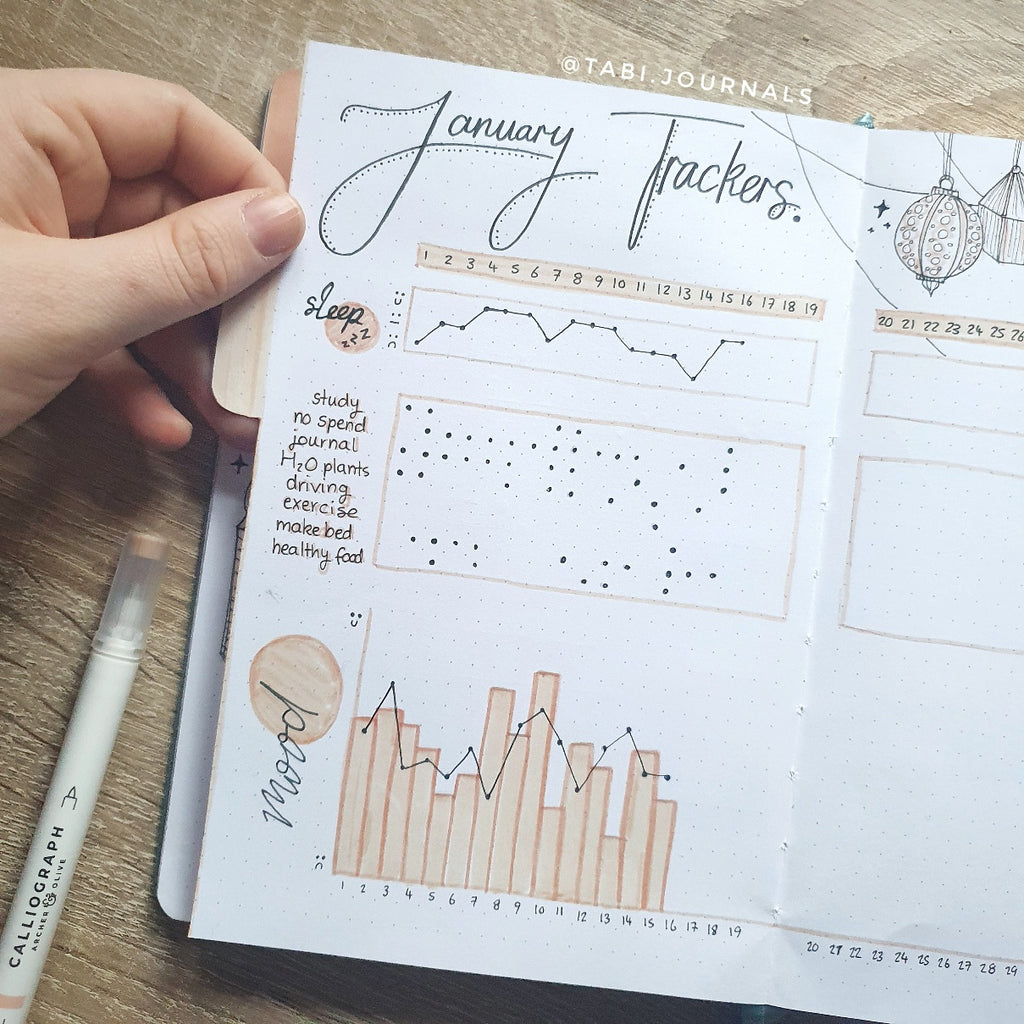 @TABI.JOURNALS
January Trackers.
1 2 3 4 5 6 7 8 9 10 11 12 13 14 15 16 17 18 19
20 21 22 23 24 25 26
sleep
zzz
study
no spend
journal
H₂O plants
driving
exercise
make bed
healthy food
mood
1 2 3 4 5 6 7 8 9 10 11 12 13 14 15 16 17 18 19
20 21 22 23 24 25 26 27 28 29
CALLIOGRAPH
ARCHER & OLIVE